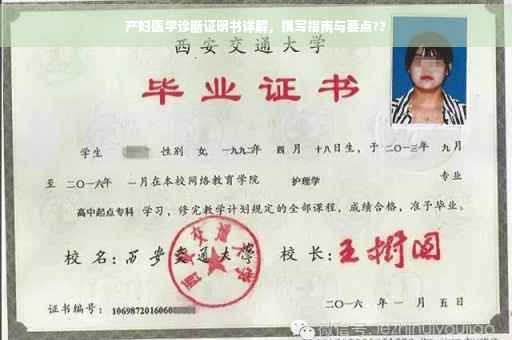 产妇医学诊断证明书详解,撰写指南与要点??
西安交通大学
毕业证书
学生 性别 女,一九九二年 四月 十八日生,于二〇一三年 九月
至 二〇一六年 一月在本校网络教育学院 护理学 专业
高中起点专科 学习,修完教学计划规定的全部课程,成绩合格,准予毕业。
校名:西安交通大学 校长:王树国
证书编号:1069872016060
二〇一六年 一月五日
微信号:jezhinuiyoujiao